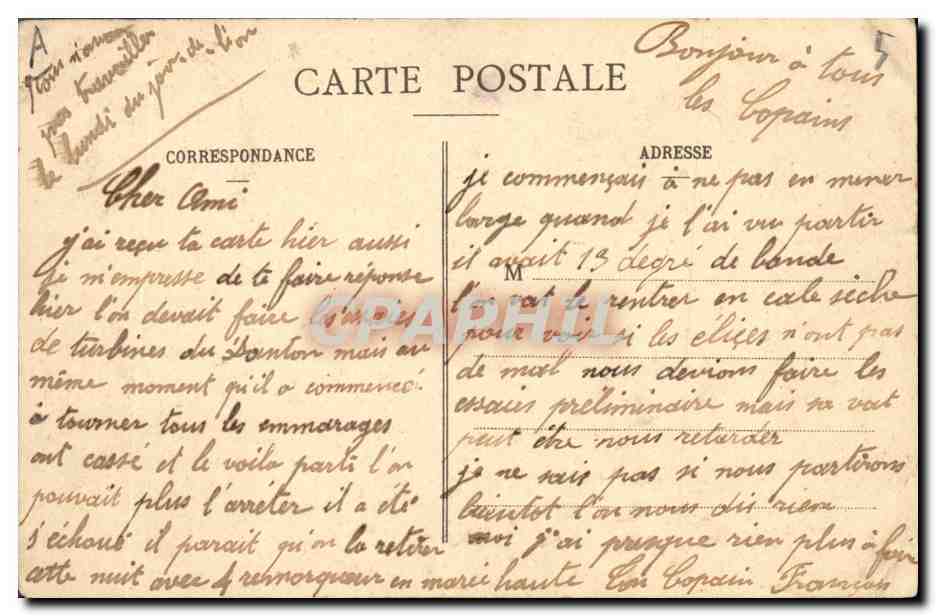 A
tous n'avons
pas travailler
le lundi du jour de l'an
Bonjour à tous
les Copains
5
CARTE POSTALE
CORRESPONDANCE
Cher Ami
j'ai reçu ta carte hier aussi
je m'empresse de te faire réponse
hier l'on devait faire les essaies
de turbines du Danton mais au
même moment qu'il a commencé
à tourner tous les emmarages
ont cassé et le voila parti l'on
pouvait plus l'arréter il a été
s'échoué il parait qu'on la retirer
cette nuit avec 4 remorqueur en marée haute
ADRESSE
je commençais à ne pas en mener
large quand je l'ai vu partir
il avait 13 degré de bande
M
l'on vat le rentrer en cale sèche
pour voir si les éliçes n'ont pas
de mal nous devions faire les
essaies préliminaire mais sa vat
peut être nous retarder
je ne sais pas si nous partirons
bientot l'on nous dis rien
moi j'ai presque rien plus à faire
Ton Copain François
CPAPHIL